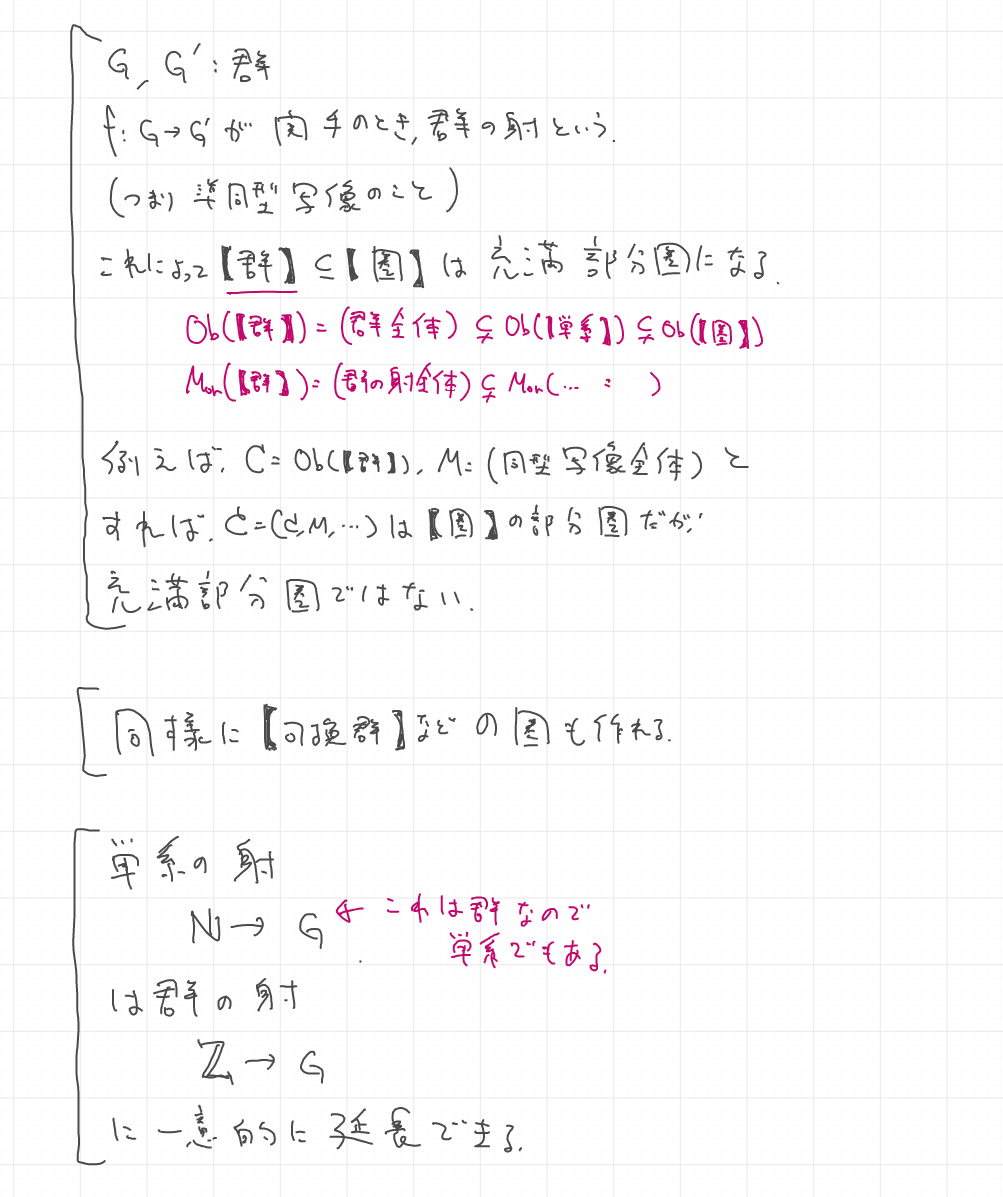 G, G′:群
f:G→G′が関手のとき,群の射という.
(つまり準同型写像のこと)
これによって【群】⊆【圏】は充満部分圏になる.
Ob(【群】)=(群全体)⊊Ob(【単系】)⊊Ob(【圏】)
Mor(【群】)=(群の射全体)⊊Mor(… : )
例えば,C=Ob(【群】),M=(同型写像全体)と
すれば,C=(C,M,…)は【圏】の部分圏だが,
充満部分圏ではない.
同様に【可換群】などの圏も作れる.
単系の射
ℕ→G ← これは群なので
単系でもある.
は群の射
ℤ→G
に一意的に延長できる.